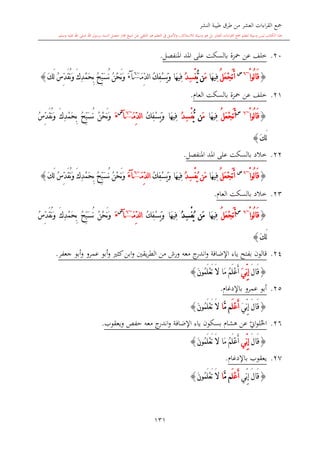 جمع القراءات العشر من طرق طيبة النشر
٢٠. خلف عن حمزة بالسكت على المد المنفصل.
﴿ قَالُوٓا۟ أَتَجْعَلُ فِيهَا مَن يُفْسِدُ فِيهَا وَيَسْفِكُ ٱلدِّمَآءَ وَنَحْنُ نُسَبِّحُ بِحَمْدِكَ وَنُقَدِّسُ لَكَ ﴾
٢١. خلف عن حمزة بالسكت العام.
﴿ قَالُوٓا۟ أَتَجْعَلُ فِيهَا مَن يُفْسِدُ فِيهَا وَيَسْفِكُ ٱلدِّمَآءَ وَنَحْنُ نُسَبِّحُ بِحَمْدِكَ وَنُقَدِّسُ
لَكَ ﴾
٢٢. خلاد بالسكت على المد المنفصل.
﴿ قَالُوٓا۟ أَتَجْعَلُ فِيهَا مَن يُفْسِدُ فِيهَا وَيَسْفِكُ ٱلدِّمَآءَ وَنَحْنُ نُسَبِّحُ بِحَمْدِكَ وَنُقَدِّسُ لَكَ ﴾
٢٣. خلاد بالسكت العام.
﴿ قَالُوٓا۟ أَتَجْعَلُ فِيهَا مَن يُفْسِدُ فِيهَا وَيَسْفِكُ ٱلدِّمَآءَ وَنَحْنُ نُسَبِّحُ بِحَمْدِكَ وَنُقَدِّسُ
لَكَ ﴾
٢٤. قالون بفتح ياء الإضافة واندرج معه ورش من الطريقين وابن كثير وأبو عمرو وأبو جعفر.
﴿ قَالَ إِنِّيَ أَعْلَمُ مَا لَا تَعْلَمُونَ ﴾
٢٥. أبو عمرو بالإدغام.
﴿ قَالَ إِنِّيَ أَعْلَم مَّا لَا تَعْلَمُونَ ﴾
٢٦. الحلواني عن هشام بسكون ياء الإضافة واندرج معه حفص ويعقوب.
﴿ قَالَ إِنِّي أَعْلَمُ مَا لَا تَعْلَمُونَ ﴾
٢٧. يعقوب بالإدغام.
﴿ قَالَ إِنِّي أَعْلَم مَّا لَا تَعْلَمُونَ ﴾
١٣١